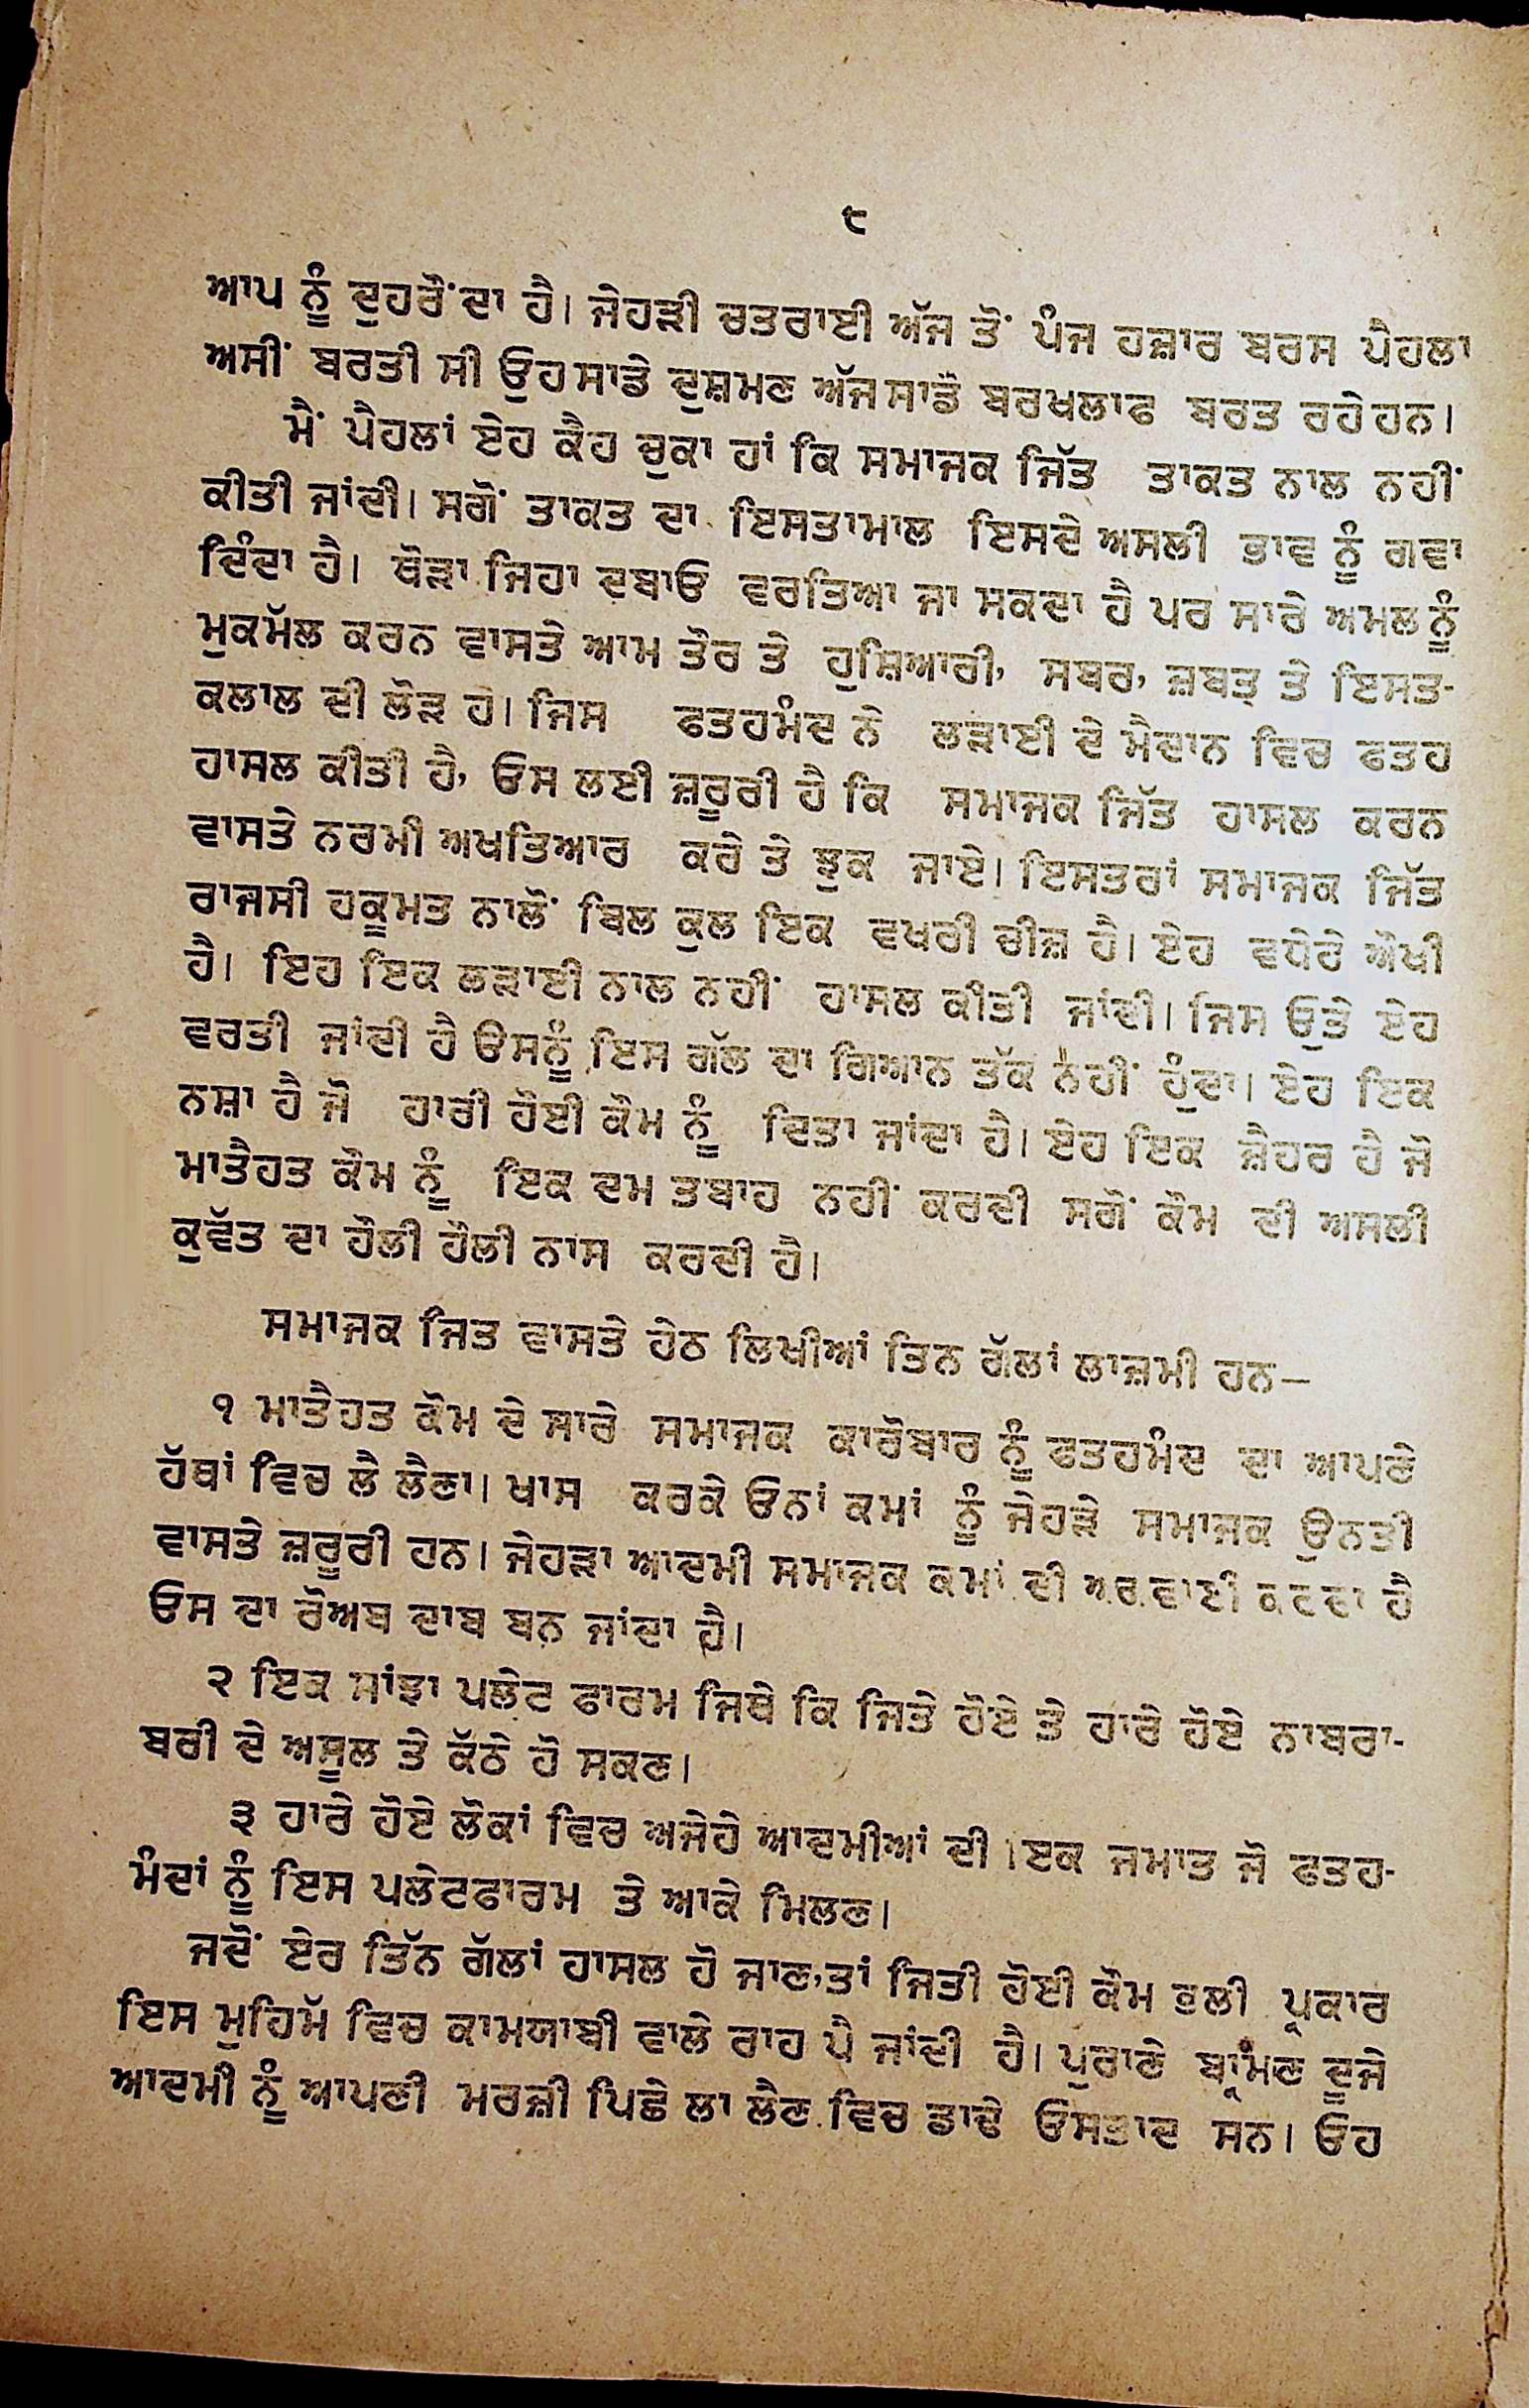 ੯
ਆਪ ਨੂੰ ਦੁਹਰੌਂਦਾ ਹੈ। ਜੇਹੜੀ ਚਤਰਾਈ ਅੱਜ ਤੋਂ ਪੰਜ ਹਜ਼ਾਰ ਬਰਸ ਪੈਹਲਾ
ਅਸੀਂ ਬਰਤੀ ਸੀ ਓੁਹ ਸਾਡੇ ਦੁਸ਼ਮਣ ਅੱਜ ਸਾਡੇ ਬਰਖਲਾਫ ਬਰਤ ਰਹੇ ਹਨ।
ਮੈਂ ਪੈਹਲਾਂ ਏਹ ਕੈਹ ਚੁਕਾ ਹਾਂ ਕਿ ਸਮਾਜਕ ਜਿੱਤ ਤਾਕਤ ਨਾਲ ਨਹੀਂ
ਕੀਤੀ ਜਾਂਦੀ। ਸਗੋਂ ਤਾਕਤ ਦਾ ਇਸਤਾਮਾਲ ਇਸਦੇ ਅਸਲੀ ਭਾਵ ਨੂੰ ਗਵਾ
ਦਿੰਦਾ ਹੈ। ਥੋੜਾ ਜਿਹਾ ਦਬਾਓ ਵਰਤਿਆ ਜਾ ਸਕਦਾ ਹੈ ਪਰ ਸਾਰੇ ਅਮਲ ਨੂੰ
ਮੁਕਮੱਲ ਕਰਨ ਵਾਸਤੇ ਆਮ ਤੌਰ ਤੇ ਹੁਸ਼ਿਆਰੀ, ਸਬਰ, ਜ਼ਬਤ ਤੇ ਇਸਤ-
ਕਲਾਲ ਦੀ ਲੋੜ ਹੇ। ਜਿਸ ਫਤਹਮੰਦ ਨੇ ਲੜਾਈ ਦੇ ਮੈਦਾਨ ਵਿਚ ਫਤਹ
ਹਾਸਲ ਕੀਤੀ ਹੈ, ਓਸ ਲਈ ਜ਼ਰੂਰੀ ਹੈ ਕਿ ਸਮਾਜਕ ਜਿੱਤ ਹਾਸਲ ਕਰਨ
ਵਾਸਤੇ ਨਰਮੀ ਅਖਤਿਆਰ ਕਰੇ ਤੇ ਝੁਕ ਜਾਏ। ਇਸਤਰਾਂ ਸਮਾਜਕ ਜਿੱਤ
ਰਾਜਸੀ ਹਕੂਮਤ ਨਾਲੋਂ ਬਿਲ ਕੁਲ ਇਕ ਵਖਰੀ ਚੀਜ਼ ਹੈ। ਏਹ ਵਧੇਰੇ ਔਖੀ
ਹੈ। ਇਹ ਇਕ ਲੜਾਈ ਨਾਲ ਨਹੀਂ ਹਾਸਲ ਕੀਤੀ ਜਾਂਦੀ। ਜਿਸ ਓੁਤੇ ਏਹ
ਵਰਤੀ ਜਾਂਦੀ ਹੈ ਓਸਨੂੰ ਇਸ ਗੱਲ ਦਾ ਗਿਆਨ ਤੱਕ ਨਹੀਂ ਹੁੰਦਾ। ਏਹ ਇਕ
ਨਸ਼ਾ ਹੈ ਜੋ ਹਾਰੀ ਹੋਈ ਕੌਮ ਨੂੰ ਦਿਤਾ ਜਾਂਦਾ ਹੈ। ਏਹ ਇਕ ਜ਼ੈਹਰ ਹੈ ਜੋ
ਮਾਤੈਹਤ ਕੌਮ ਨੂੰ ਇਕ ਦਮ ਤਬਾਹ ਨਹੀਂ ਕਰਦੀ ਸਗੋਂ ਕੌਮ ਦੀ ਅਸਲੀ
ਕੁਵੱਤ ਦਾ ਹੌਲੀ ਹੌਲੀ ਨਾਸ ਕਰਦੀ ਹੈ।
ਸਮਾਜਕ ਜਿਤ ਵਾਸਤੇ ਹੇਠ ਲਿਖੀਆਂ ਤਿਨ ਗੱਲਾਂ ਲਾਜ਼ਮੀ ਹਨ—
੧ ਮਾਤੈਹਤ ਕੌਮ ਦੇ ਸਾਰੇ ਸਮਾਜਕ ਕਾਰੋਬਾਰ ਨੂੰ ਫਤਹਮੰਦ ਦਾ ਆਪਣੇ
ਹੱਥਾਂ ਵਿਚ ਲੈ ਲੈਣਾ। ਖਾਸ ਕਰਕੇ ਓਨਾਂ ਕਮਾਂ ਨੂੰ ਜੇਹੜੇ ਸਮਾਜਕ ਉਨਤੀ
ਵਾਸਤੇ ਜ਼ਰੂਰੀ ਹਨ। ਜੇਹੜਾ ਆਦਮੀ ਸਮਾਜਕ ਕਮਾਂ ਦੀ ਅਗਵਾਈ ਕਰਦਾ ਹੈ
ਓਸ ਦਾ ਰੋਅਬ ਦਾਬ ਬਨ ਜਾਂਦਾ ਹੈ।
੨ ਇਕ ਸਾਂਝਾ ਪਲੇਟ ਫਾਰਮ ਜਿਥੇ ਕਿ ਜਿਤੇ ਹੋਏ ਤੇ ਹਾਰੇ ਹੋਏ ਨਾਬਰਾ-
ਬਰੀ ਦੇ ਅਸੂਲ ਤੇ ਕੱਠੇ ਹੋ ਸਕਣ।
੩ ਹਾਰੇ ਹੋਏ ਲੋਕਾਂ ਵਿਚ ਅਜੇਹੇ ਆਦਮੀਆਂ ਦੀ ਇਕ ਜਮਾਤ ਜੋ ਫਤਹ-
ਮੰਦਾਂ ਨੂੰ ਇਸ ਪਲੇਟਫਾਰਮ ਤੇ ਆਕੇ ਮਿਲਣ।
ਜਦੋਂ ਏਰ ਤਿੱਨ ਗੱਲਾਂ ਹਾਸਲ ਹੋ ਜਾਣ,ਤਾਂ ਜਿਤੀ ਹੋਈ ਕੌਮ ਭਲੀ ਪ੍ਰਕਾਰ
ਇਸ ਮੁਹਿਮੱ ਵਿਚ ਕਾਮਯਾਬੀ ਵਾਲੇ ਰਾਹ ਪੈ ਜਾਂਦੀ ਹੈ। ਪੁਰਾਣੇ ਬ੍ਰਾਂਮਣ ਦੂਜੇ
ਆਦਮੀ ਨੂੰ ਆਪਣੀ ਮਰਜ਼ੀ ਪਿਛੇ ਲਾ ਲੈਣ ਵਿਚ ਡਾਢੇ ਓਸਤਾਦ ਸਨ। ਓਹ